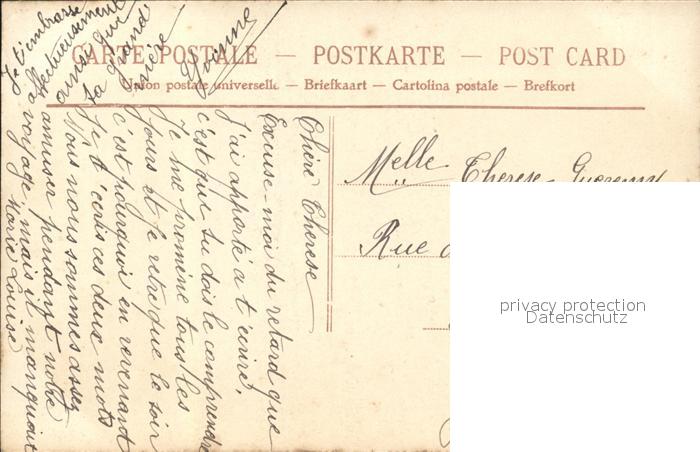 CARTE POSTALE — POSTKARTE — POST CARD
Union postale universelle — Briefkaart — Cartolina postale — Brefkort
Chère Therese
Excuse-moi du retard que
j'ai apporté a t'ecrire,
c'est que tu dois le comprendre
Je me promène tous les
jours et je retre que le soir
c'est pourquoi en revenant
je t'écris ces deux mots
Nous nous sommes assez
amuser pendant notre
voyage mais il manquait
Marie Louise
Je t'embrasse
affectueusement
ainsi que
ta grand
mère
Yvonne
Melle Therese
Rue
privacy protection
Datenschutz